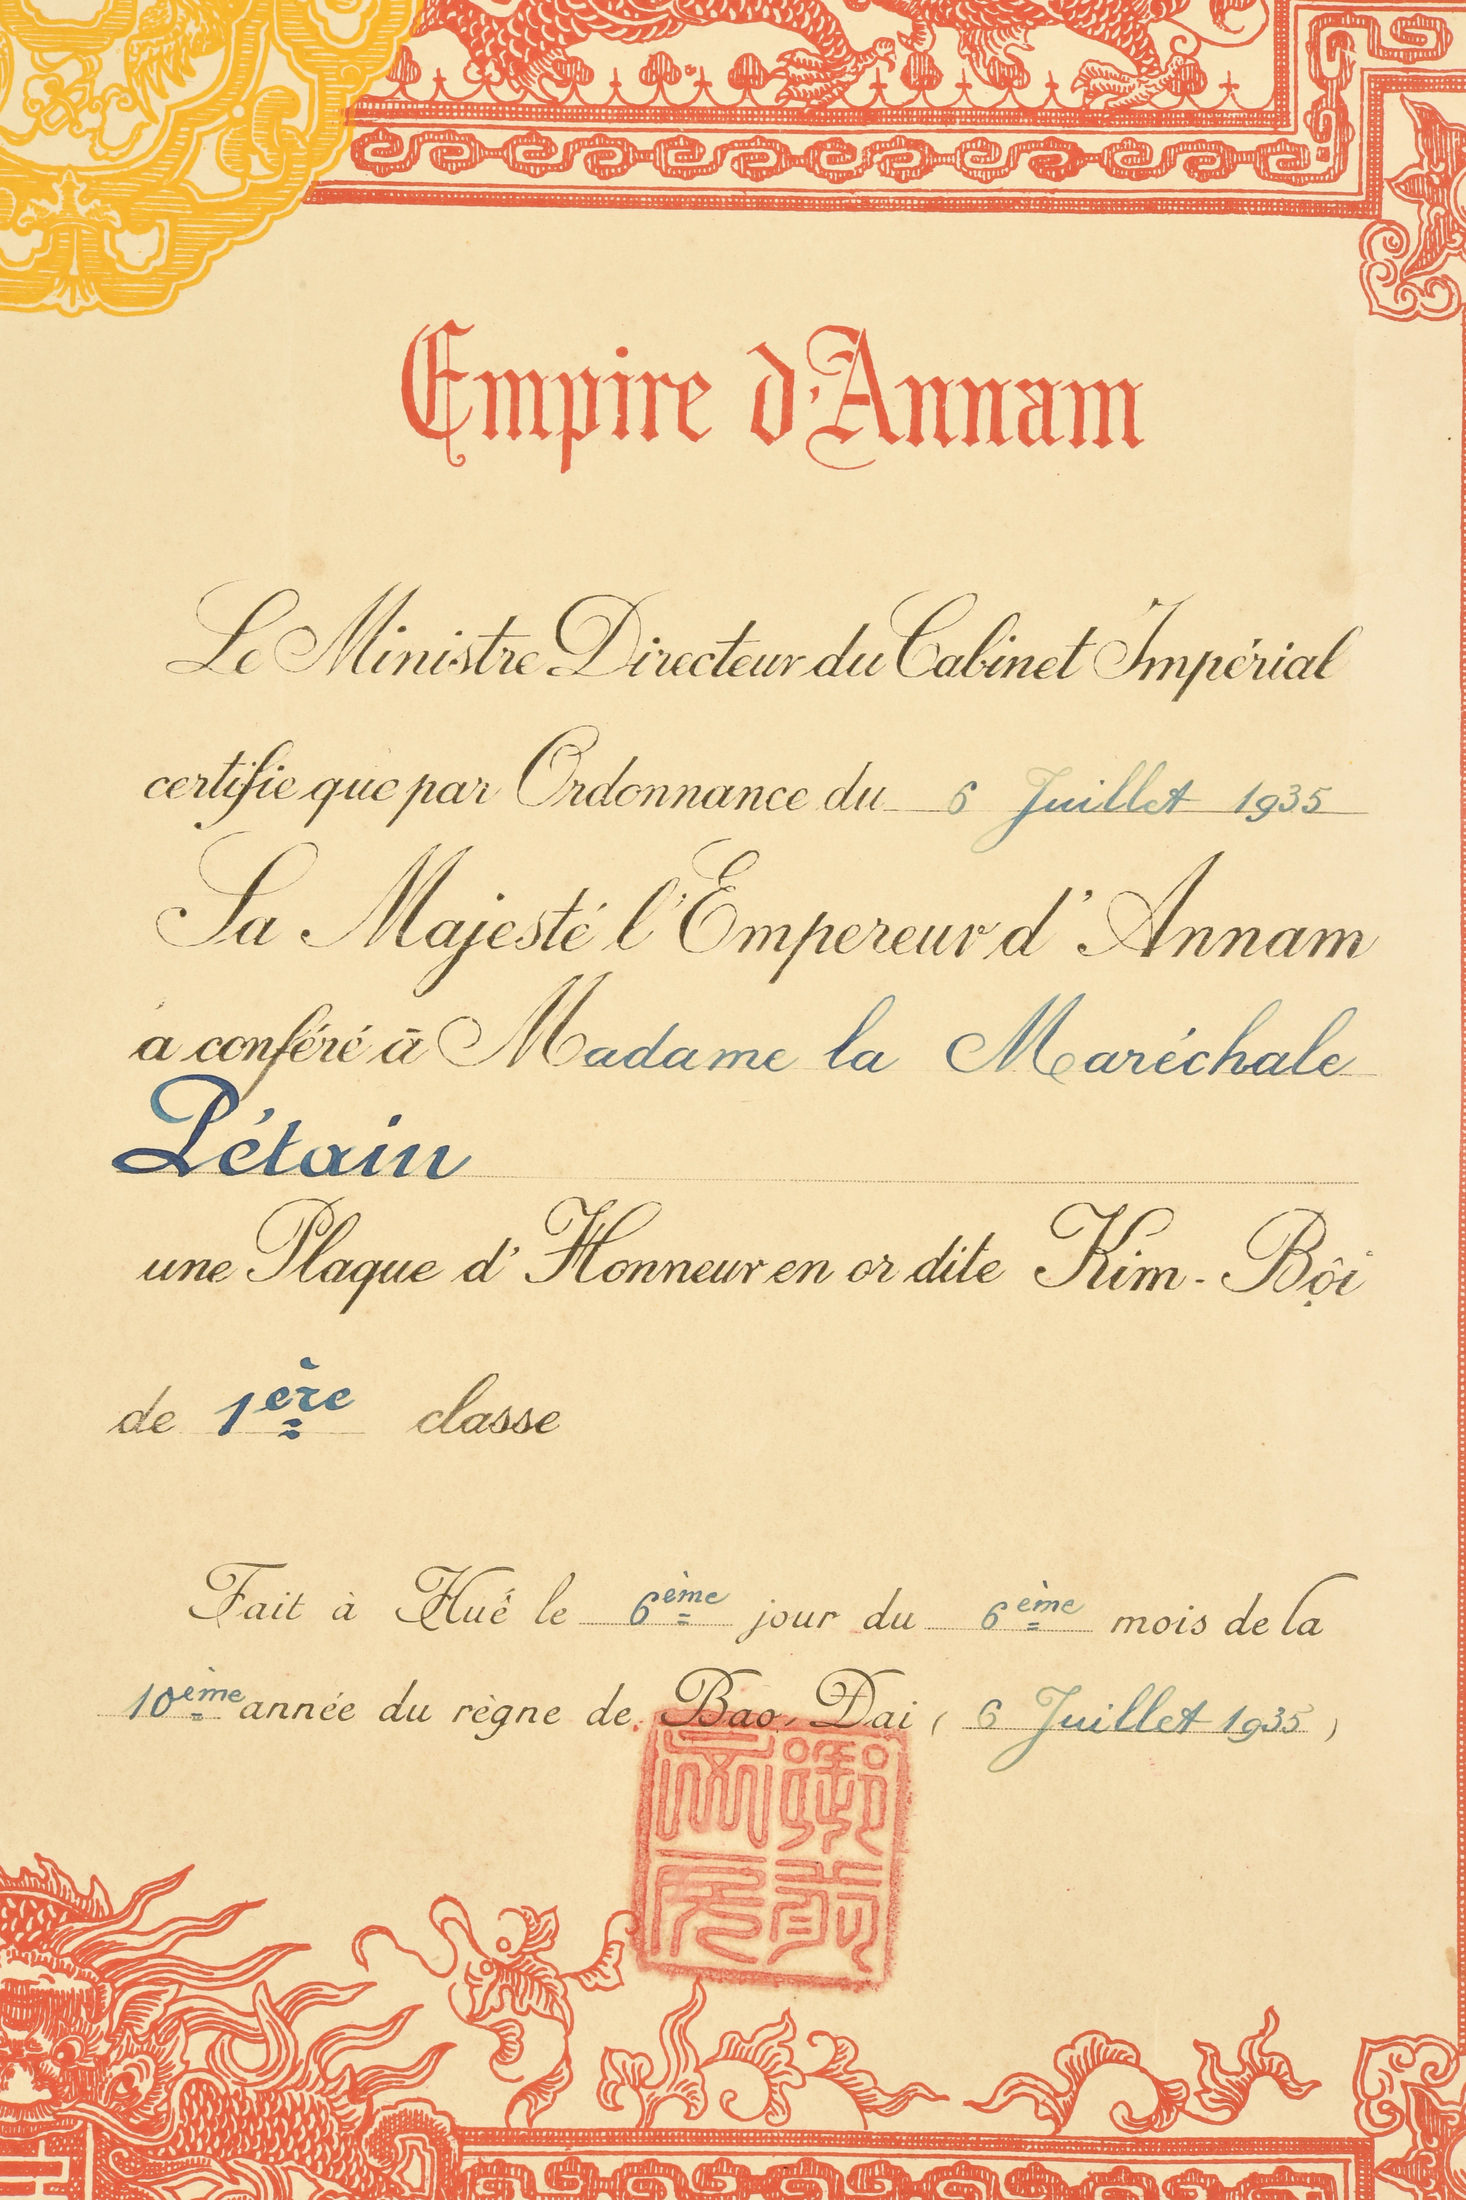 Empire d'Annam
Le Ministre Directeur du Cabinet Impérial
certifie que par Ordonnance du 6 Juillet 1935
Sa Majesté l'Empereur d'Annam
a conféré à Madame la Maréchale
Pétain
une Plaque d'Honneur en or dite Kim-Bội
de 1ère classe
Fait à Huế le 6ème jour du 6ème mois de la
10ème année du règne de Bao-Dai (6 Juillet 1935)
御前
文房